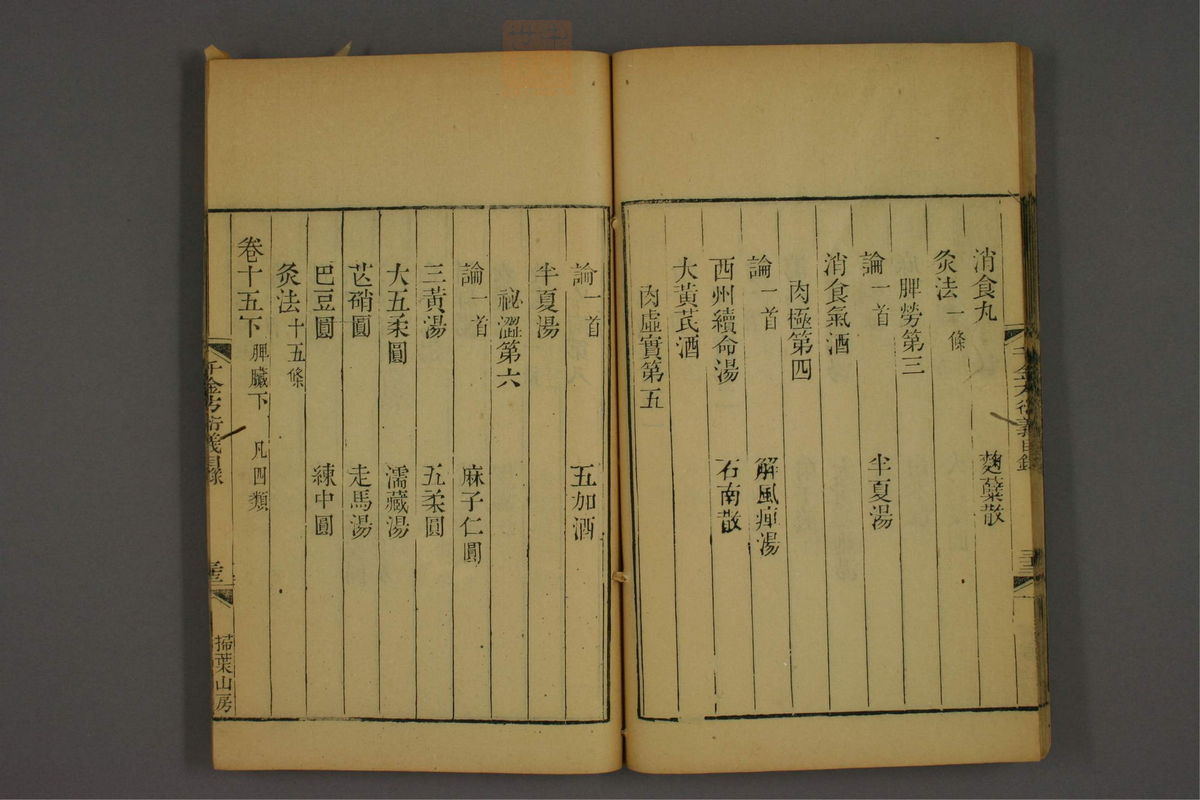 消食丸 麴蘗散
灸法一條
脾勞第三
論一首 半夏湯
消食氣酒
肉極第四
論一首 解風痺湯
西州續命湯 石南散
大黃芪酒
肉虛實第五
論一首 五加酒
半夏湯
祕澀第六
論一首 麻子仁圓
三黃湯 五柔圓
大五柔圓 濡藏湯
芒硝圓 走馬湯
巴豆圓 練中圓
灸法十五條
卷十五下 脾臟下 凡四類
千金方衍義目錄
掃葉山房